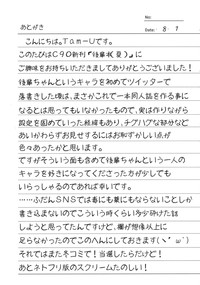 No:
Date: 8・9
あとがき
こんにちは。Tam-Uです。
このたびはC90新刊『後輩ちゃん(夏)』に
ご興味をお持ちいただきましてありがとうございました!
後輩ちゃんというキャラを初めてツイッターで
落書きした頃は、まさかこれで一本同人誌を作る事に
なるとは思ってもいなかったもので、実は作りながら
設定を固めていった経緯もあり、チグハグな部分など
あいかわらずお見せするにはお恥ずかしい点が
色々あったかと思います。
ですがそういう面も含めて後輩ちゃんという一人の
キャラを好きになってくださった方が少しでも
いらっしゃるのであれば幸いです。
……ふだんSNSでは毒にも薬にもならないことしか
書き込まないのでこういう時くらい多少砕けた話
しようと思ってたんですけど、欄が想像以上に
足らなかったのでこのへんにしておきます(ヽ´ω`)
それではまた冬コミで!当選したらだけど!
あとネトフリ版のスクリームたのしい!